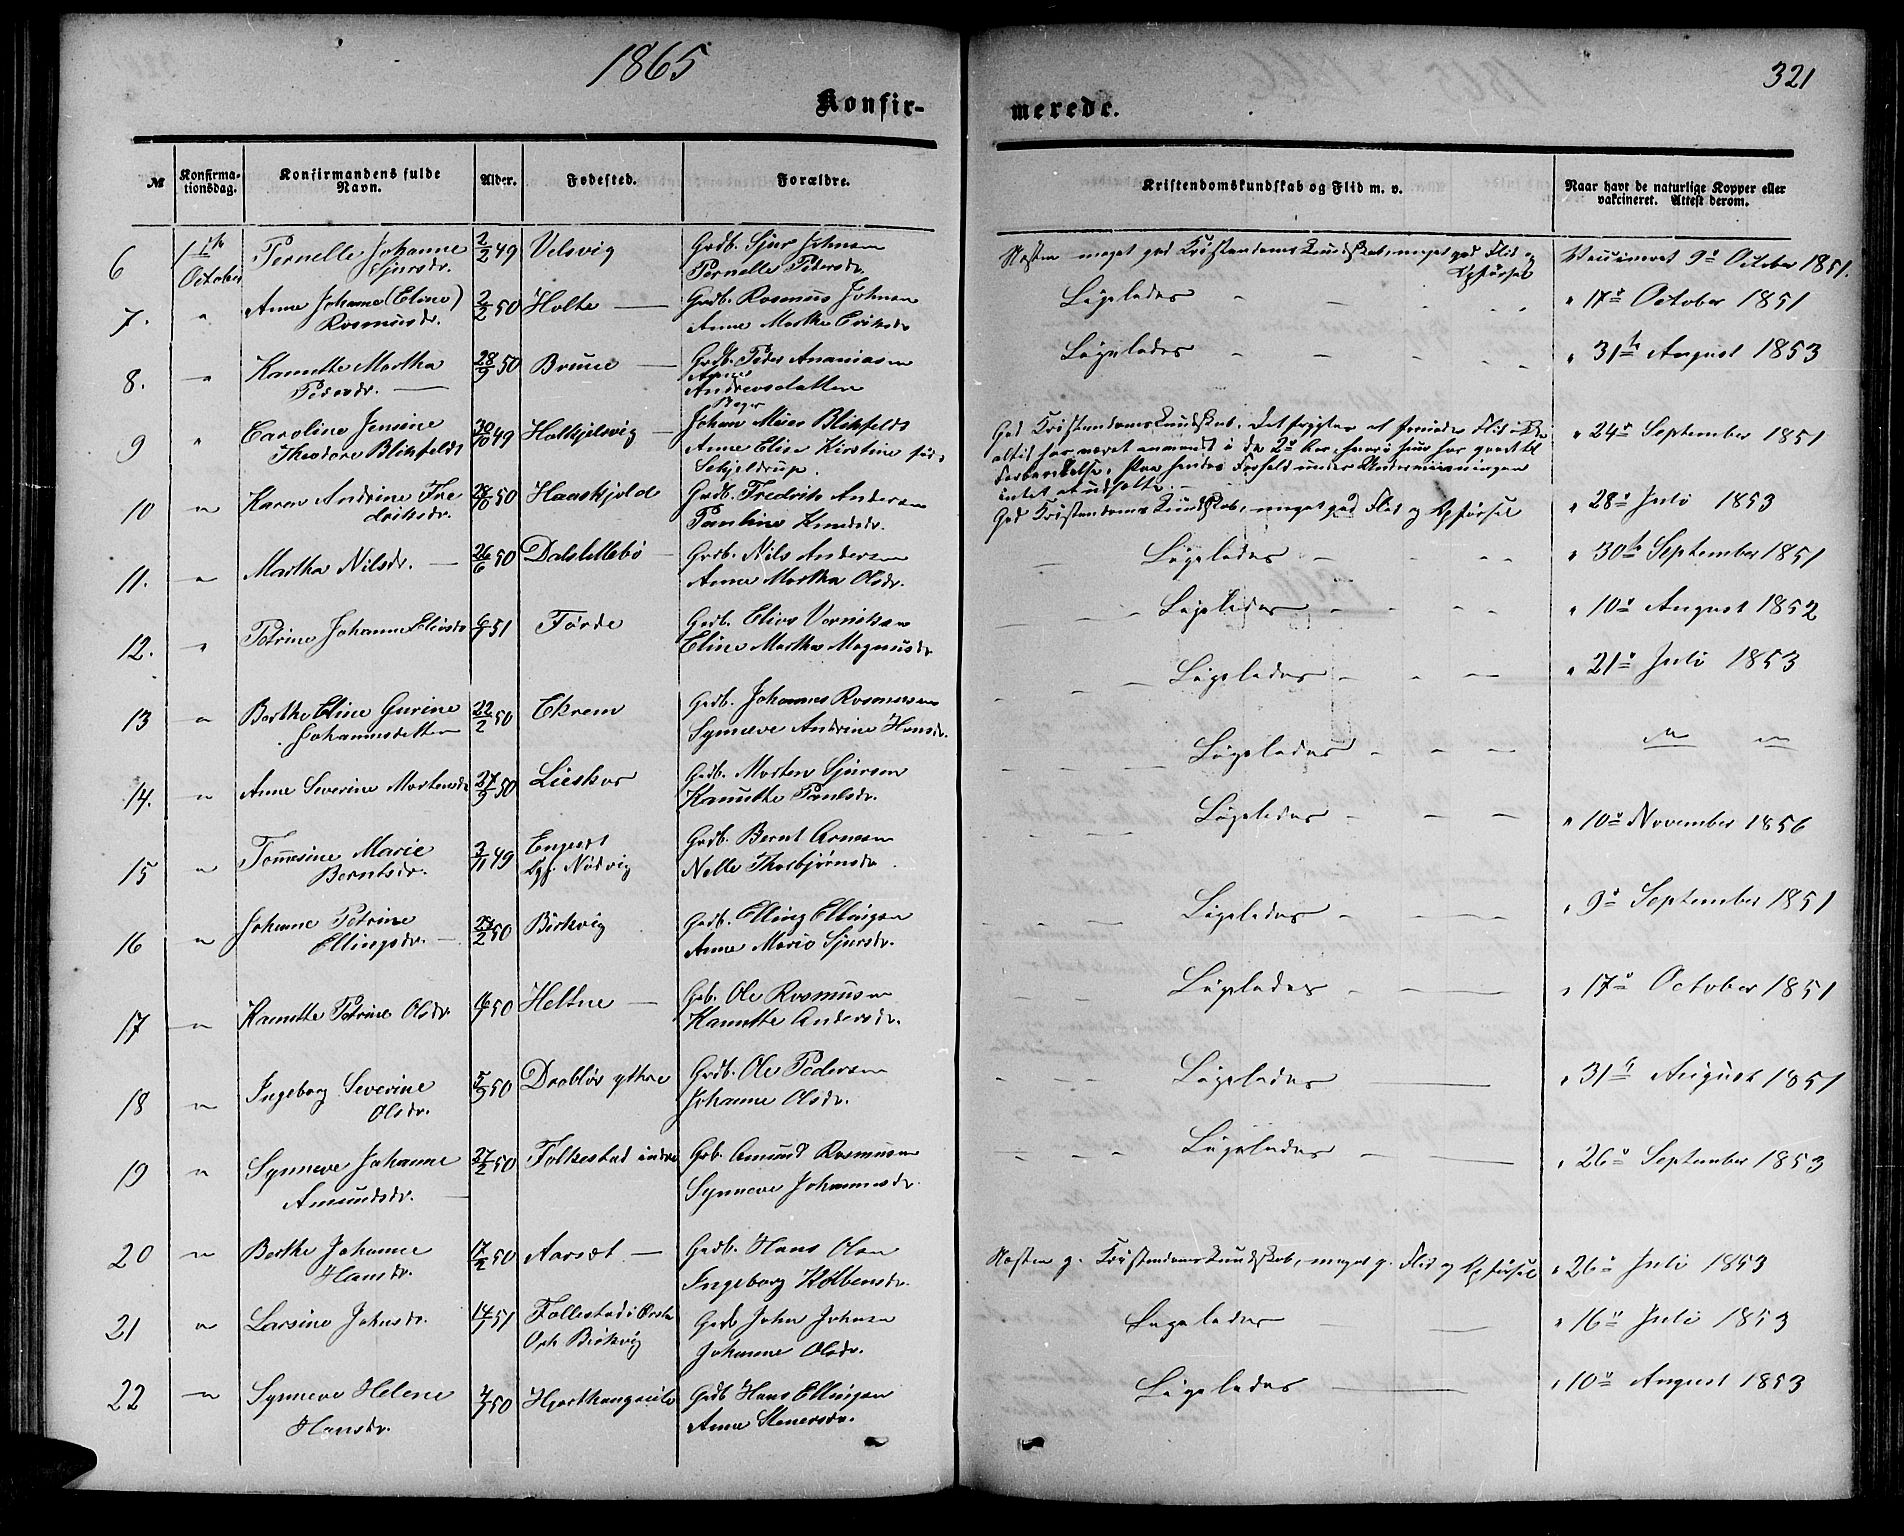 1865
321
Konfir-
merede.
№
Konfirma-
tionsdag.
Konfirmandens fulde
Navn.
Alder.
Fødested.
Forældre.
Kristendomskundskab og Flid m. v.
Naar havt de naturlige Kopper eller
vakcineret. Attest derom.
6 1ste October Pernelle Johanne Sjursdr. 2/2 49 Velsvig Grdb. Sjur Johnsen
Pernelle Pedersdr.
Næsten meget god Kristendomskundskab, meget god Flid og Opførsel
Vaccineret 9de October 1851.
7. " Anne Johanne (Eline) Rasmusdr. 2/2 50 Holte Grdb. Rasmus Johnsen
Anne Marthe Eriksdr
Ligeledes
" 17de October 1851
8. " Kanutte Martha Pedersdr. 28/9 50 Brune Grdb. Peder Ananiasen
Agnes
Andreasdatter
Ligeledes
" 31te August 1853
9 " Caroline Jensine Theodore Blikfeldt 30/10 49 Halkjelsvig Johan Blikfeldt
Anne Elise Kirstine
Schjeldrup.
God Kristendomskundskab.
" 24de September 1851
10 " Karen Andrine Fredriksdr. 50 Haaskjold Grdb. Fredrik Andersen
Pauline Knudsdr.
God Kristendomskundskab, meget god Flid og Opførsel
" 28de Juli 1853
11. " Martha Nilsdr. 26/6 50 Dalslillebø Grdb. Nils Andersen
Anne Martha Olsdr.
Ligeledes
" 30te September 1851
12. " Petrine Johanne Eliasdr 51 Førde Grdb. Elias
Eline Martha Magnusdr
Ligeledes
" 10de August 1852
13 " Berthe Eline Gurine Johannesdatter 22/2 50 Ekrem Grdb. Johannes Rasmussen
Synneve Andrine Hansdr.
Ligeledes
" 21de Juli 1853
14. " Anne Severine Mortensdr 27/9 50 Lieskar Grdb. Morten Sjursen
Kanutte Paulsdr.
Ligeledes
" "
15 " Tomesine Marie Berntsdr. 3/11 49 Nødvig Grdb. Bernt Arnesen
Nelle Thorbjørnsdr
Ligeledes
" 10de November 1856
16 " Johanne Petrine Ellingsdr. 50 Birkvig Grdb. Elling Ellingsen
Anne Marie Sjursdr.
Ligeledes
" 9de September 1851
17 " Kanutte Petrine Olsdr 50 Heltne Grb. Ole Rasmusen
Kanutte Andersdr.
Ligeledes
" 17de October 1851
18 " Ingeborg Severine Olsdr. 5/9 50 Drabløs ytre Grdb. Ole Pedersen
Johanne Olsdr.
Ligeledes
" 31te August 1851
19 " Synneve Johanne Amundsdr. 27/2 50 Folkestad indre Grb. Amund Rasmusen
Synneve Johannesdr.
Ligeledes
" 26de September 1853
20 " Berthe Johanne Hansdr. 17/2 50 Aarset Grdb. Hans Olsen
Ingeborg Kolbensdr.
Næsten g. Kristendomskundskab, meget g. Flid og Opførsel
" 26de Juli 1853
21 " Larsine Johnsdr. 14/7 51 Follestad i Ørsta
Oph Birkvig
Grdb John Johnsen
Johanne Olsdr.
Ligeledes
" 16de Juli 1853
22 " Synneve Helene Hansdr. 50 Grdb Hans Ellingsen
Anne Steensdr.
Ligeledes
" 10de August 1853